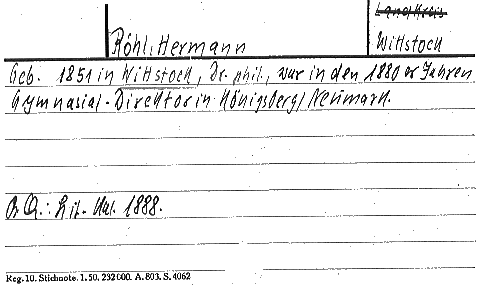 Landkreis
Röhl, Hermann
Wittstock
Geb. 1851 in Wittstock, Dr. phil., war in den 1880er Jahren
Gymnasial-Direktor in Königsberg/Neumark.
Br Qu.: Lit. Kal. 1888.
Reg. 10. Stichnote. 1. 50. 232000. A. 803. S. 4062